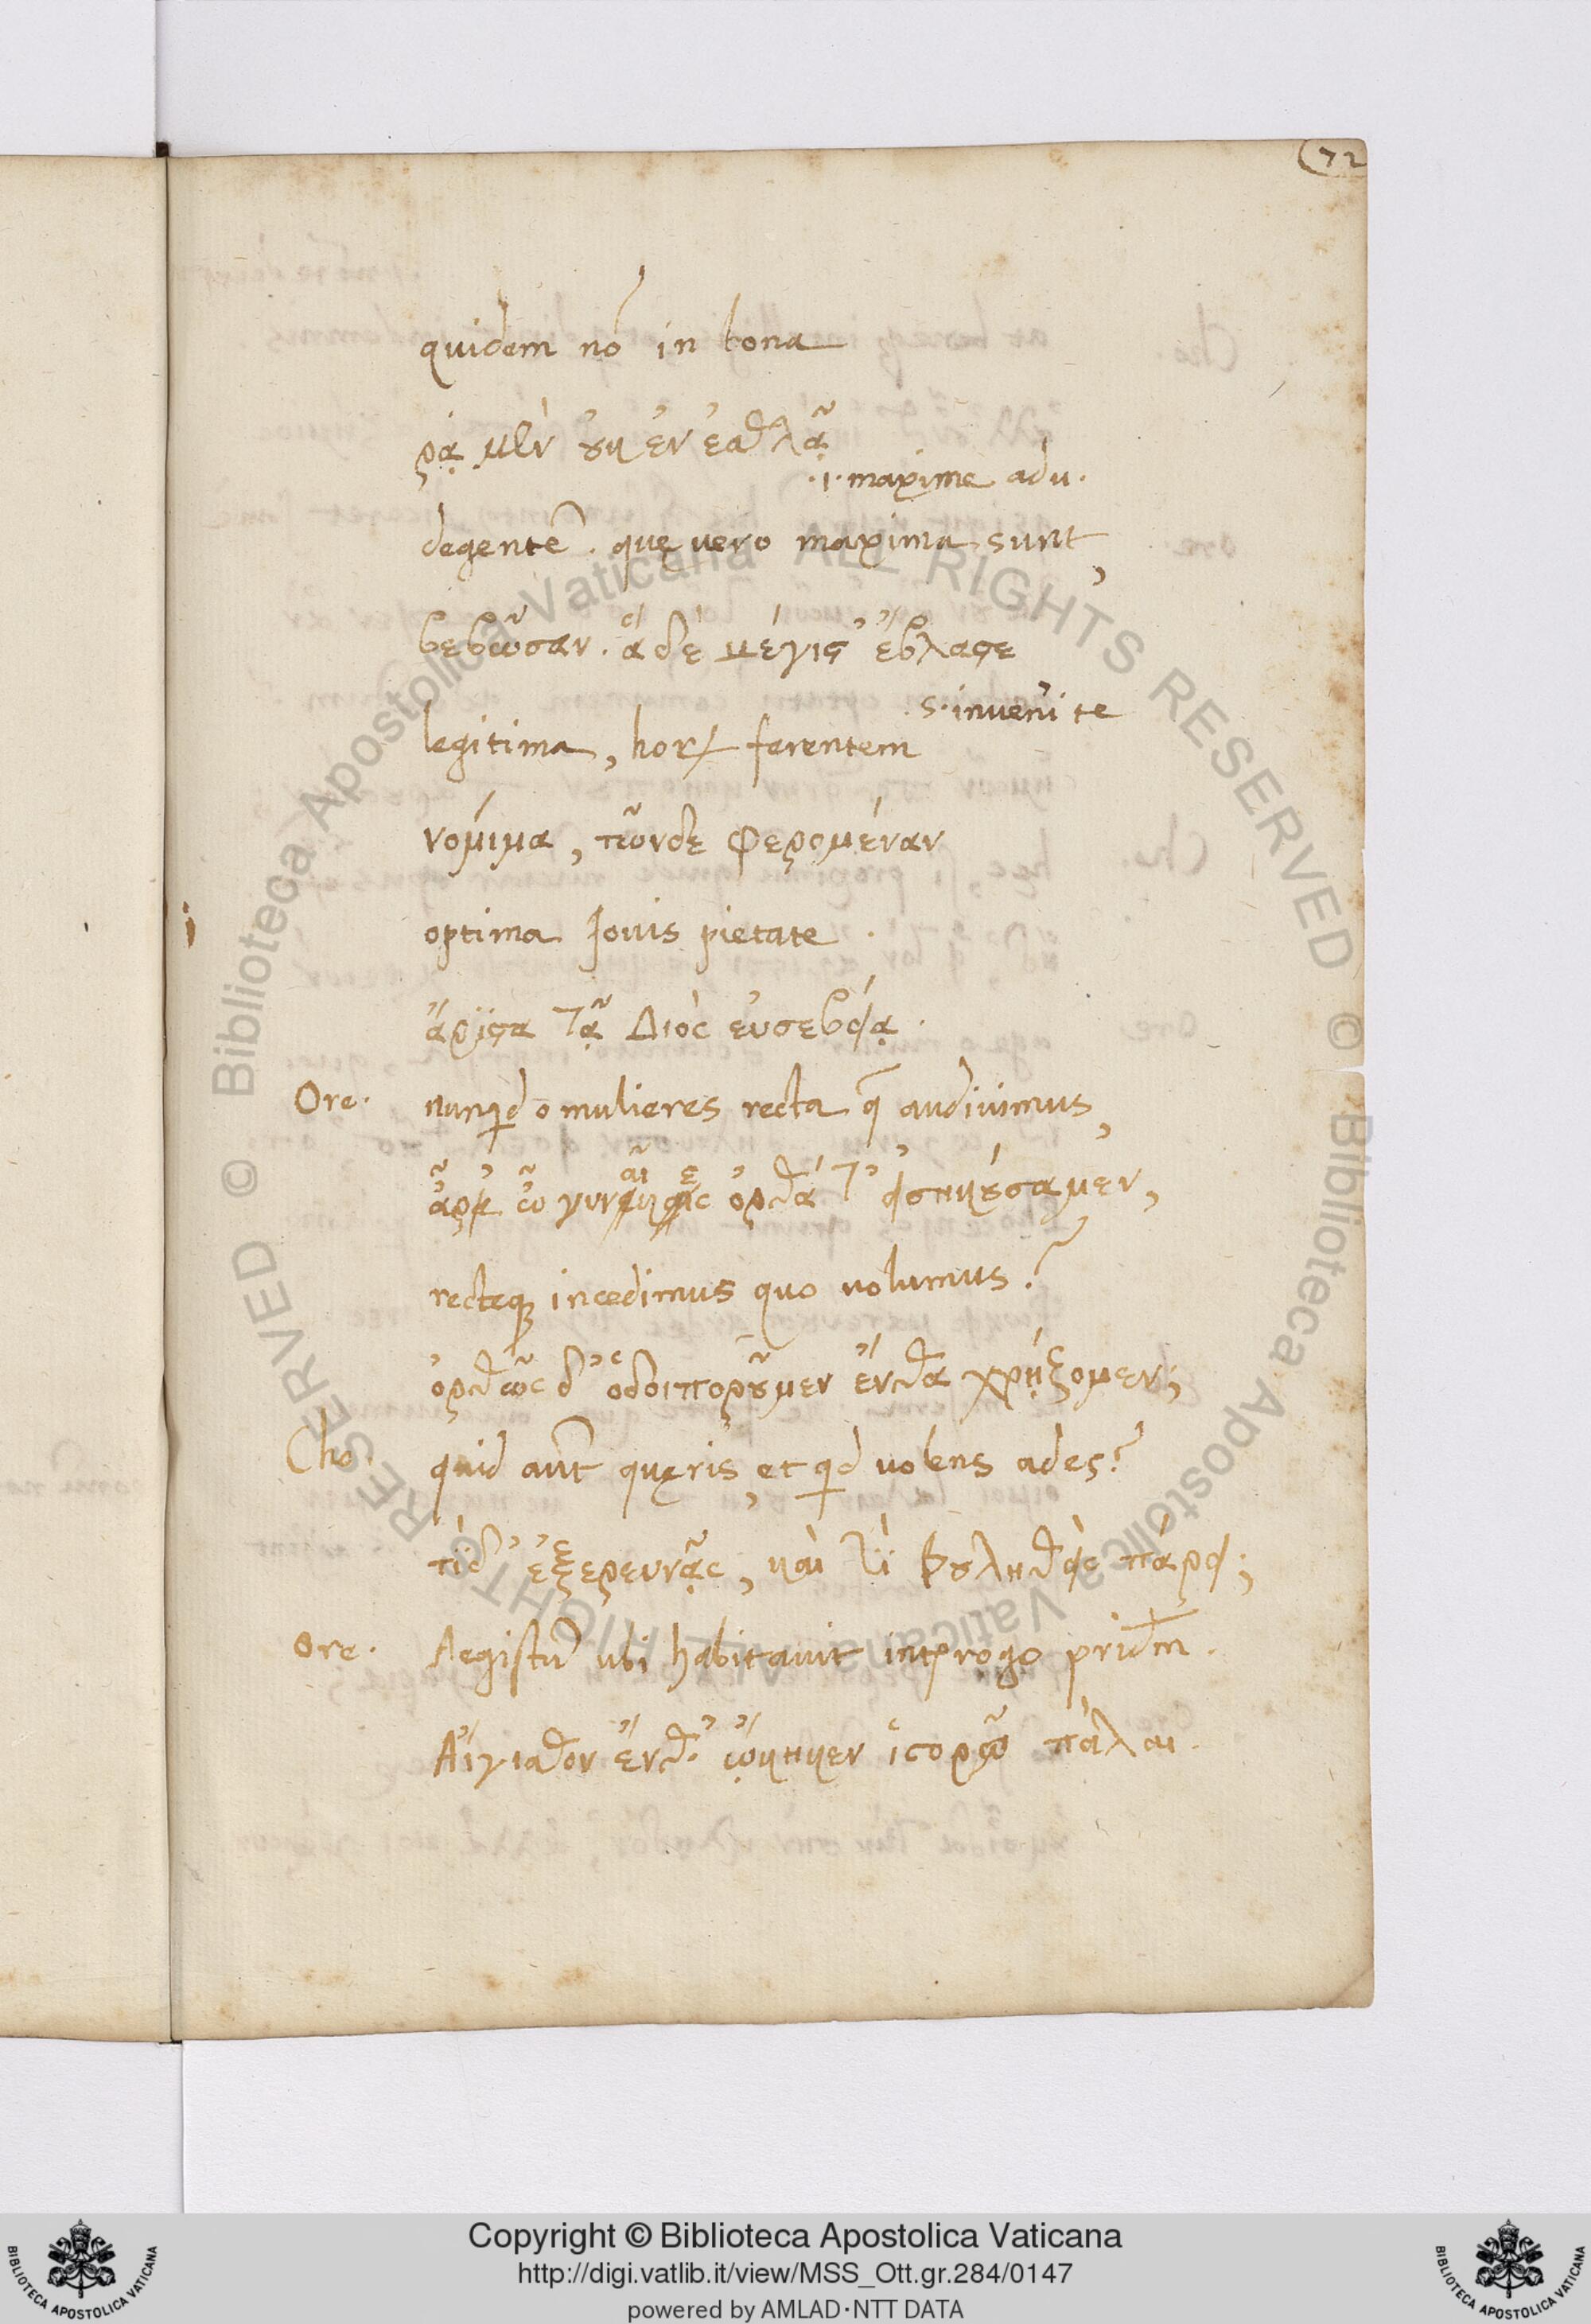 72
quidem nō in bona
ρᾳ μὲν οὐκ ἐν ἐσθλᾷ
.i. maxime adu.
degentē. quę uero maxima sunt,
βεβῶσαν. ἃ δὲ μέγιϛ' ἔβλαϛε
s. inueni te
legitima, horꝝ ferentem
νόμιμα, τῶνδε φερομέναν
optima Iouis pietate.
ἄριϛα τᾷ Διὸς εὐσεβείᾳ.
Ore. nunqd o mulieres recta q̄ audiuimus,
ἆρ' ὦ γυναῖκες ὀρθά τ' εἰσηκούσαμεν,
recteqꝫ incedimus quo uolumus?
ὀρθῶς δ' ὁδοιποροῦμεν ἔνθα χρῄζομεν;
Cho. quid aūt quęris, et qd uolens ades?
τί δ' ἐξερευνᾷς, καὶ τί βουληθεὶς πάρει;
Ore. Aegistū ubi habitauit intꝑrogo pridm̄.
Αἴγισθον ἔνθ' ᾤκηκεν ἱϛορῶ πάλαι.
© Biblioteca Apostolica Vaticana ALL RIGHTS RESERVED
© Biblioteca Apostolica Vaticana ALL RIGHTS RESERVED
Copyright © Biblioteca Apostolica Vaticana
http://digi.vatlib.it/view/MSS_Ott.gr.284/0147
powered by AMLAD·NTT DATA
BIBLIOTECA APOSTOLICA VATICANA
BIBLIOTECA APOSTOLICA VATICANA